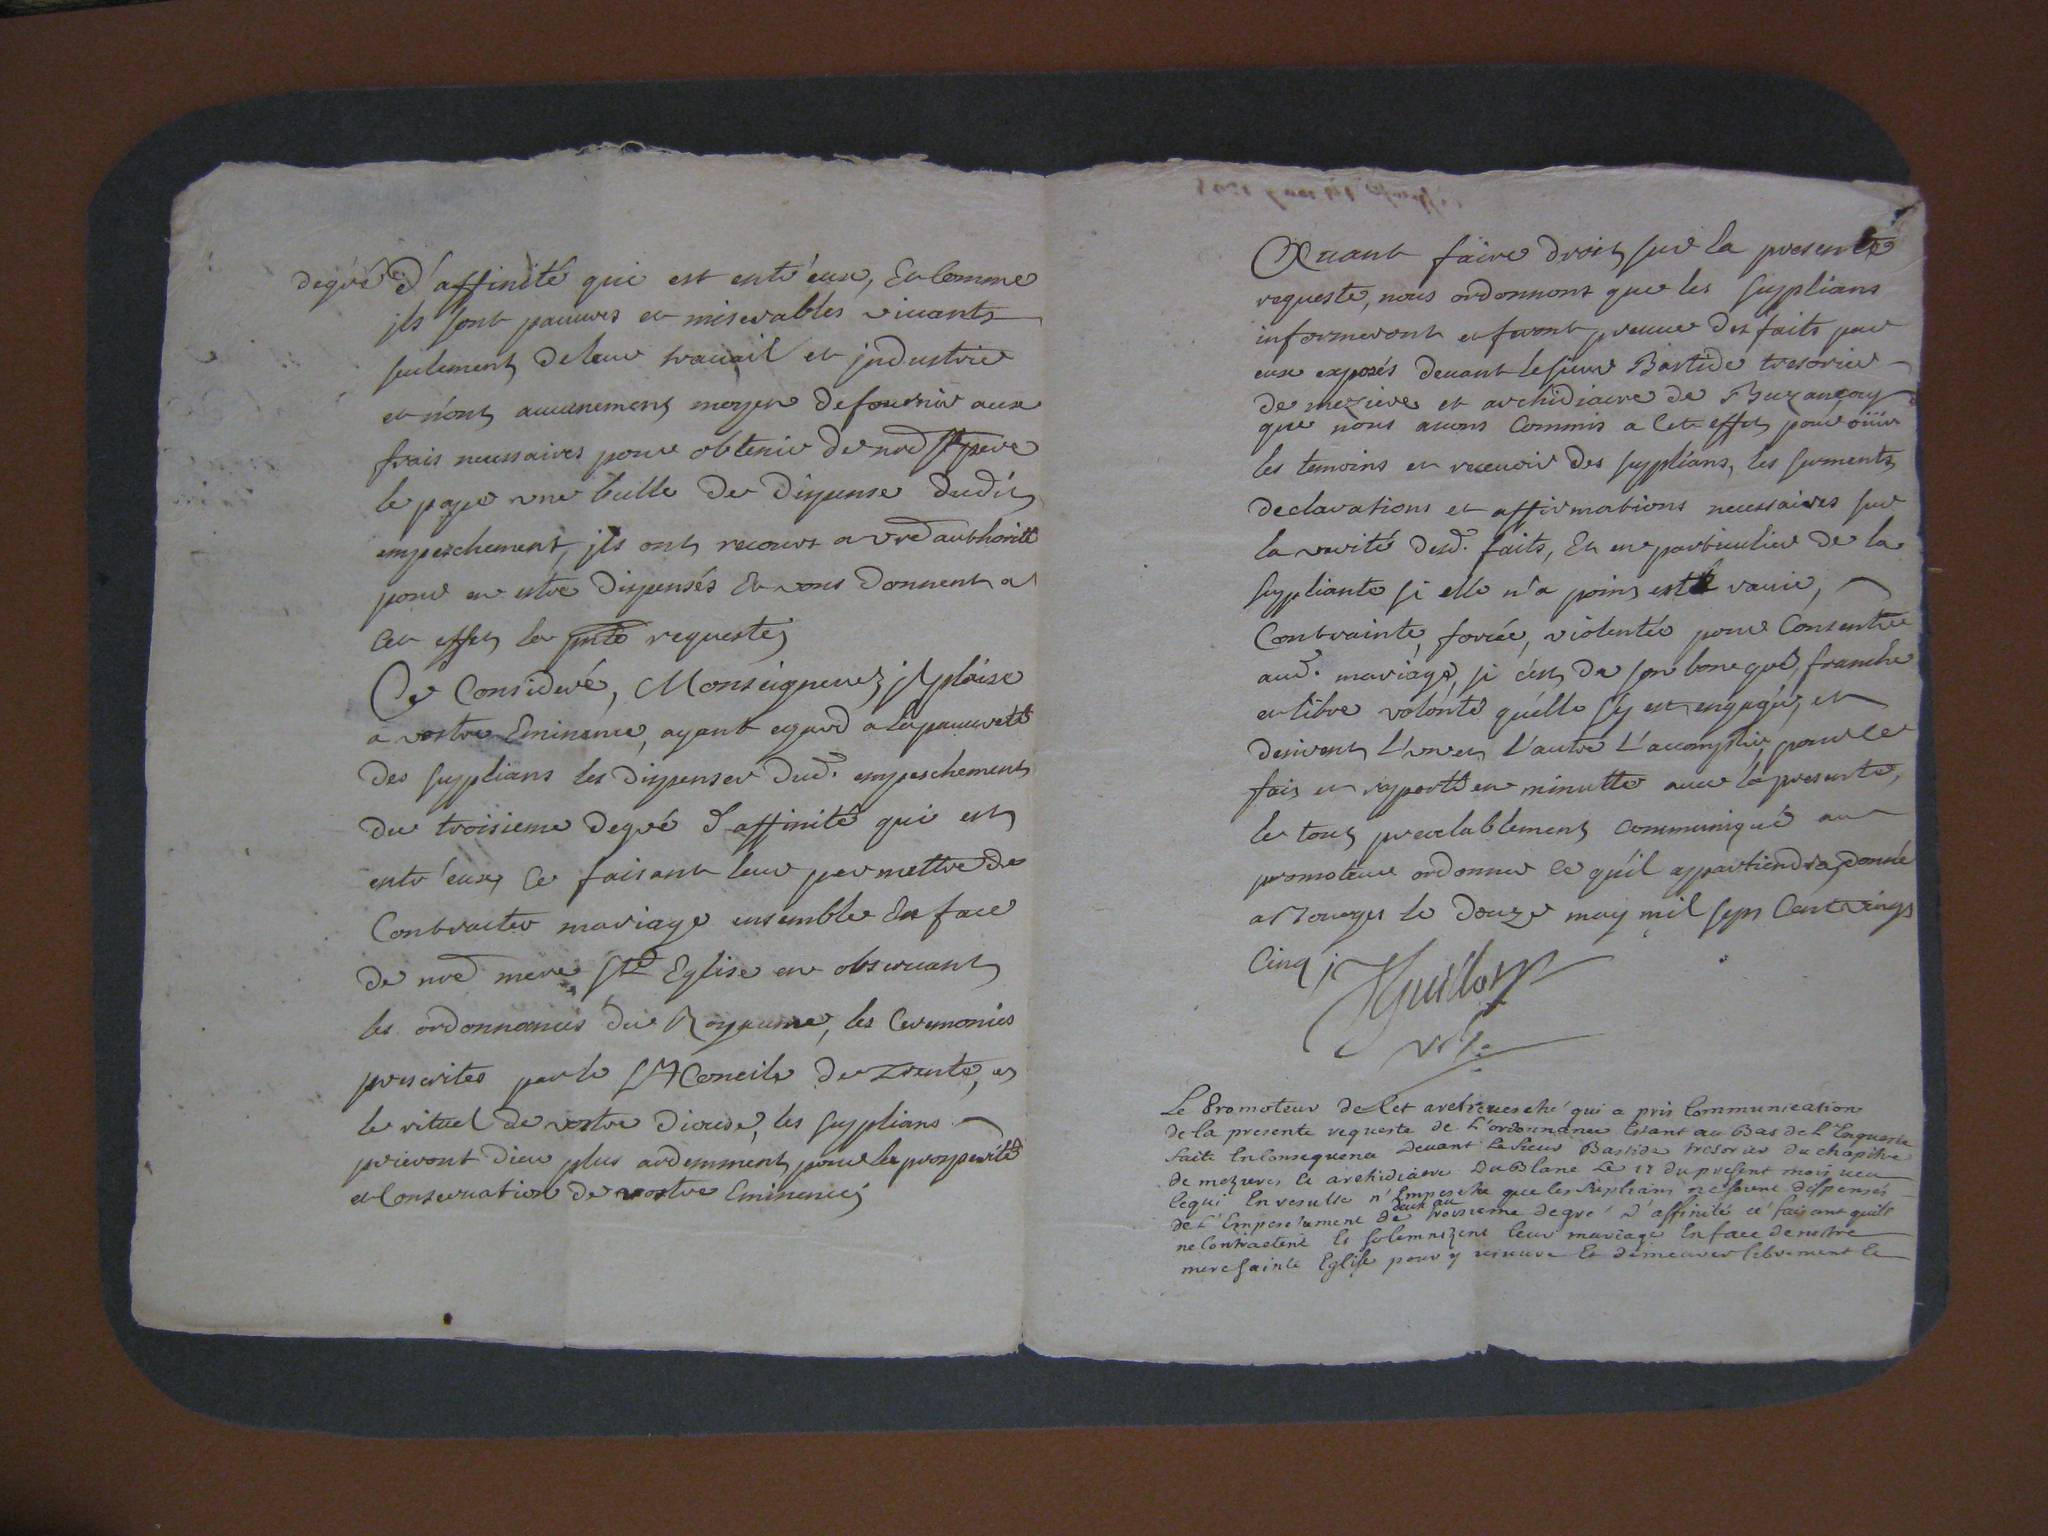 degré d'affinité qui est entr'eux, Et Comme
ils sont pauures et miserables viuants
seulement de leur trauail et jndustrie
et n'ont aucunement moyen de fournir aux
frais necessaires pour obtenir de nre St pere
le pape vne bulle de dispense dudit
empeschement, jls ont recours a vre authorité
pour en estre dispensés Et vous donnent a
Cet effet la pnte requeste,
Ce Consideré, Monseigneur, jl plaise
a vostre Eminence, ayant egard a la pauureté
des supplians les dispenser dud. empeschement
du troisieme degré d'affinité qui est
entr'eux, Ce faisant leur permettre de
Contracter mariage ensemble En face
de nre mere Ste Eglise en obseruant
les ordonnances du Royaume, les Ceremonies
prescrites par le St Concile de Trente, et
le rituel de vostre diocese, les supplians
prieront dieu plus ardemment pour la prosperité
et Conseruation de vostre Eminence,
Auant faire droit sur la presente
requeste, nous ordonnons que les supplians
informeront et feront preuue des faits par
eux exposés deuant le sieur Bastide tresorier
de meziere et archidiacre de Buzançay
que nous auons Commis a Cet effet pour oüir
les temoins et receuoir des supplians, les serments
declarations et affirmations necessaires sur
la verité desd. faits, Et en particulier de la
suppliante si elle n'a point esté rauie,
Contrainte, forcée, violentée pour Consentir
aud. mariage, si c'est de son bon gré, franche
et libre volonté qu'elle s'y est engagée, et
desirent l'un et l'autre l'accomplir, pour ce
fait et rapporté en minutte auec la presente,
le tout prealablement Communiqué au
promoteur ordonner ce qu'il appartiendra, donné
a Bourges le douze may mil sept Cent vingt
Cinq
Guillot
Le Promoteur de Cet archeuesché qui a pris Communication
de la presente requeste de l'ordonnance Estant au Bas de l'Enqueste
faite En Consequence Deuant Le sieur Bastide tresorier du chapitre
de mezieres Et archidiacre Du Blanc Le 17 du present mois ueu
Cequi En resulte n'Empesche que les supliants ne soient dispensés
de L'Empeschement de deux au troisieme degré d'affinité ce faisant quils
ne Contractent Et solemnizent leur mariage En face de nostre
mere sainte Eglise pour y uiuure Et demeurer librement Ce